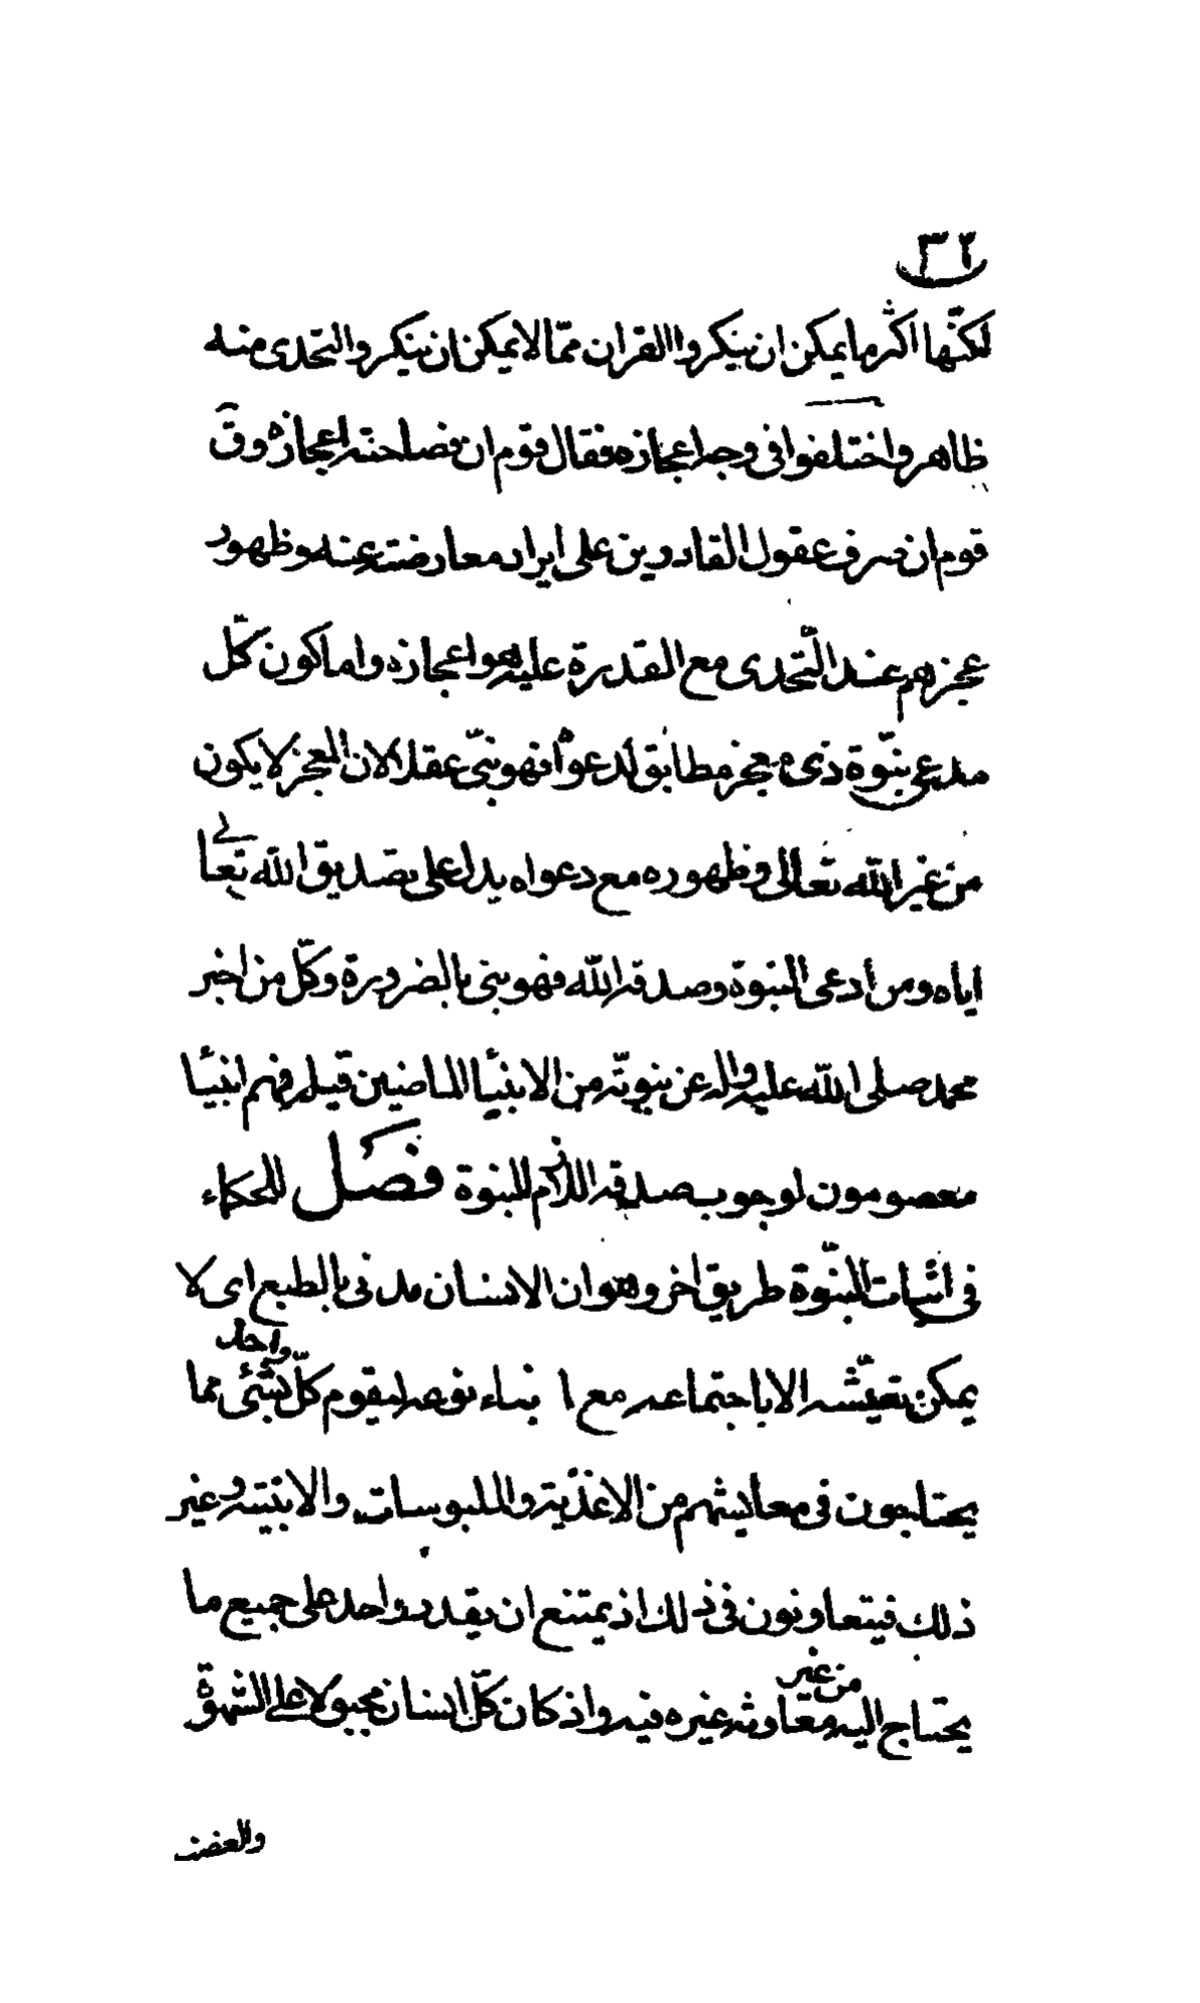 ٣٢
لكنّها اكثر ما يمكن ان ينكروا القران ممّا لا يمكن ان ينكر والتحدى منه
ظاهر واختلفوا فى وجه اعجازه فقال قوم ان فصاحته اعجازه وق
قوم ان صرف عقول القادرين على ايراد معارضته عنه وظهور
عجزهم عند التّحدى مع القدرة عليه هو اعجازه واما كون كلّ
مدعى نبّوة ذى معجز مطابق لدعواه فهو نبىّ عقلا لان المعجز لا يكون
من غير الله تعالى وظهوره مع دعواه يدل على تصديق الله تعالى
اياه ومن ادعى النبّوة وصدقه الله فهو نبى بالضرورة وكلّ من اخبر
محمد صلى الله عليه واله عن نبوته من الانبيأ الماضين قبله فهم انبيأ
معصومون لوجوب صدقه اللازم للنبوة فصل للحكماء
فى اثبات النبّوة طريق اخر وهو ان الانسان مدنى بالطبع اى لا
يمكن تعيّشه الا باجتماعه مع ابناء نوعه ليقوم كلّ واحد بشئ مما
يحتاجون فى معايشهم من الاغذية والملبوسات والابنية وغير
ذلك فيتعاونون فى ذلك اذ يمتنع ان يقدر واحد على جميع ما
يحتاج اليه من غير معاونة غيره فيه واذ كان كلّ انسان مجبولا على الشهوة
والغضب